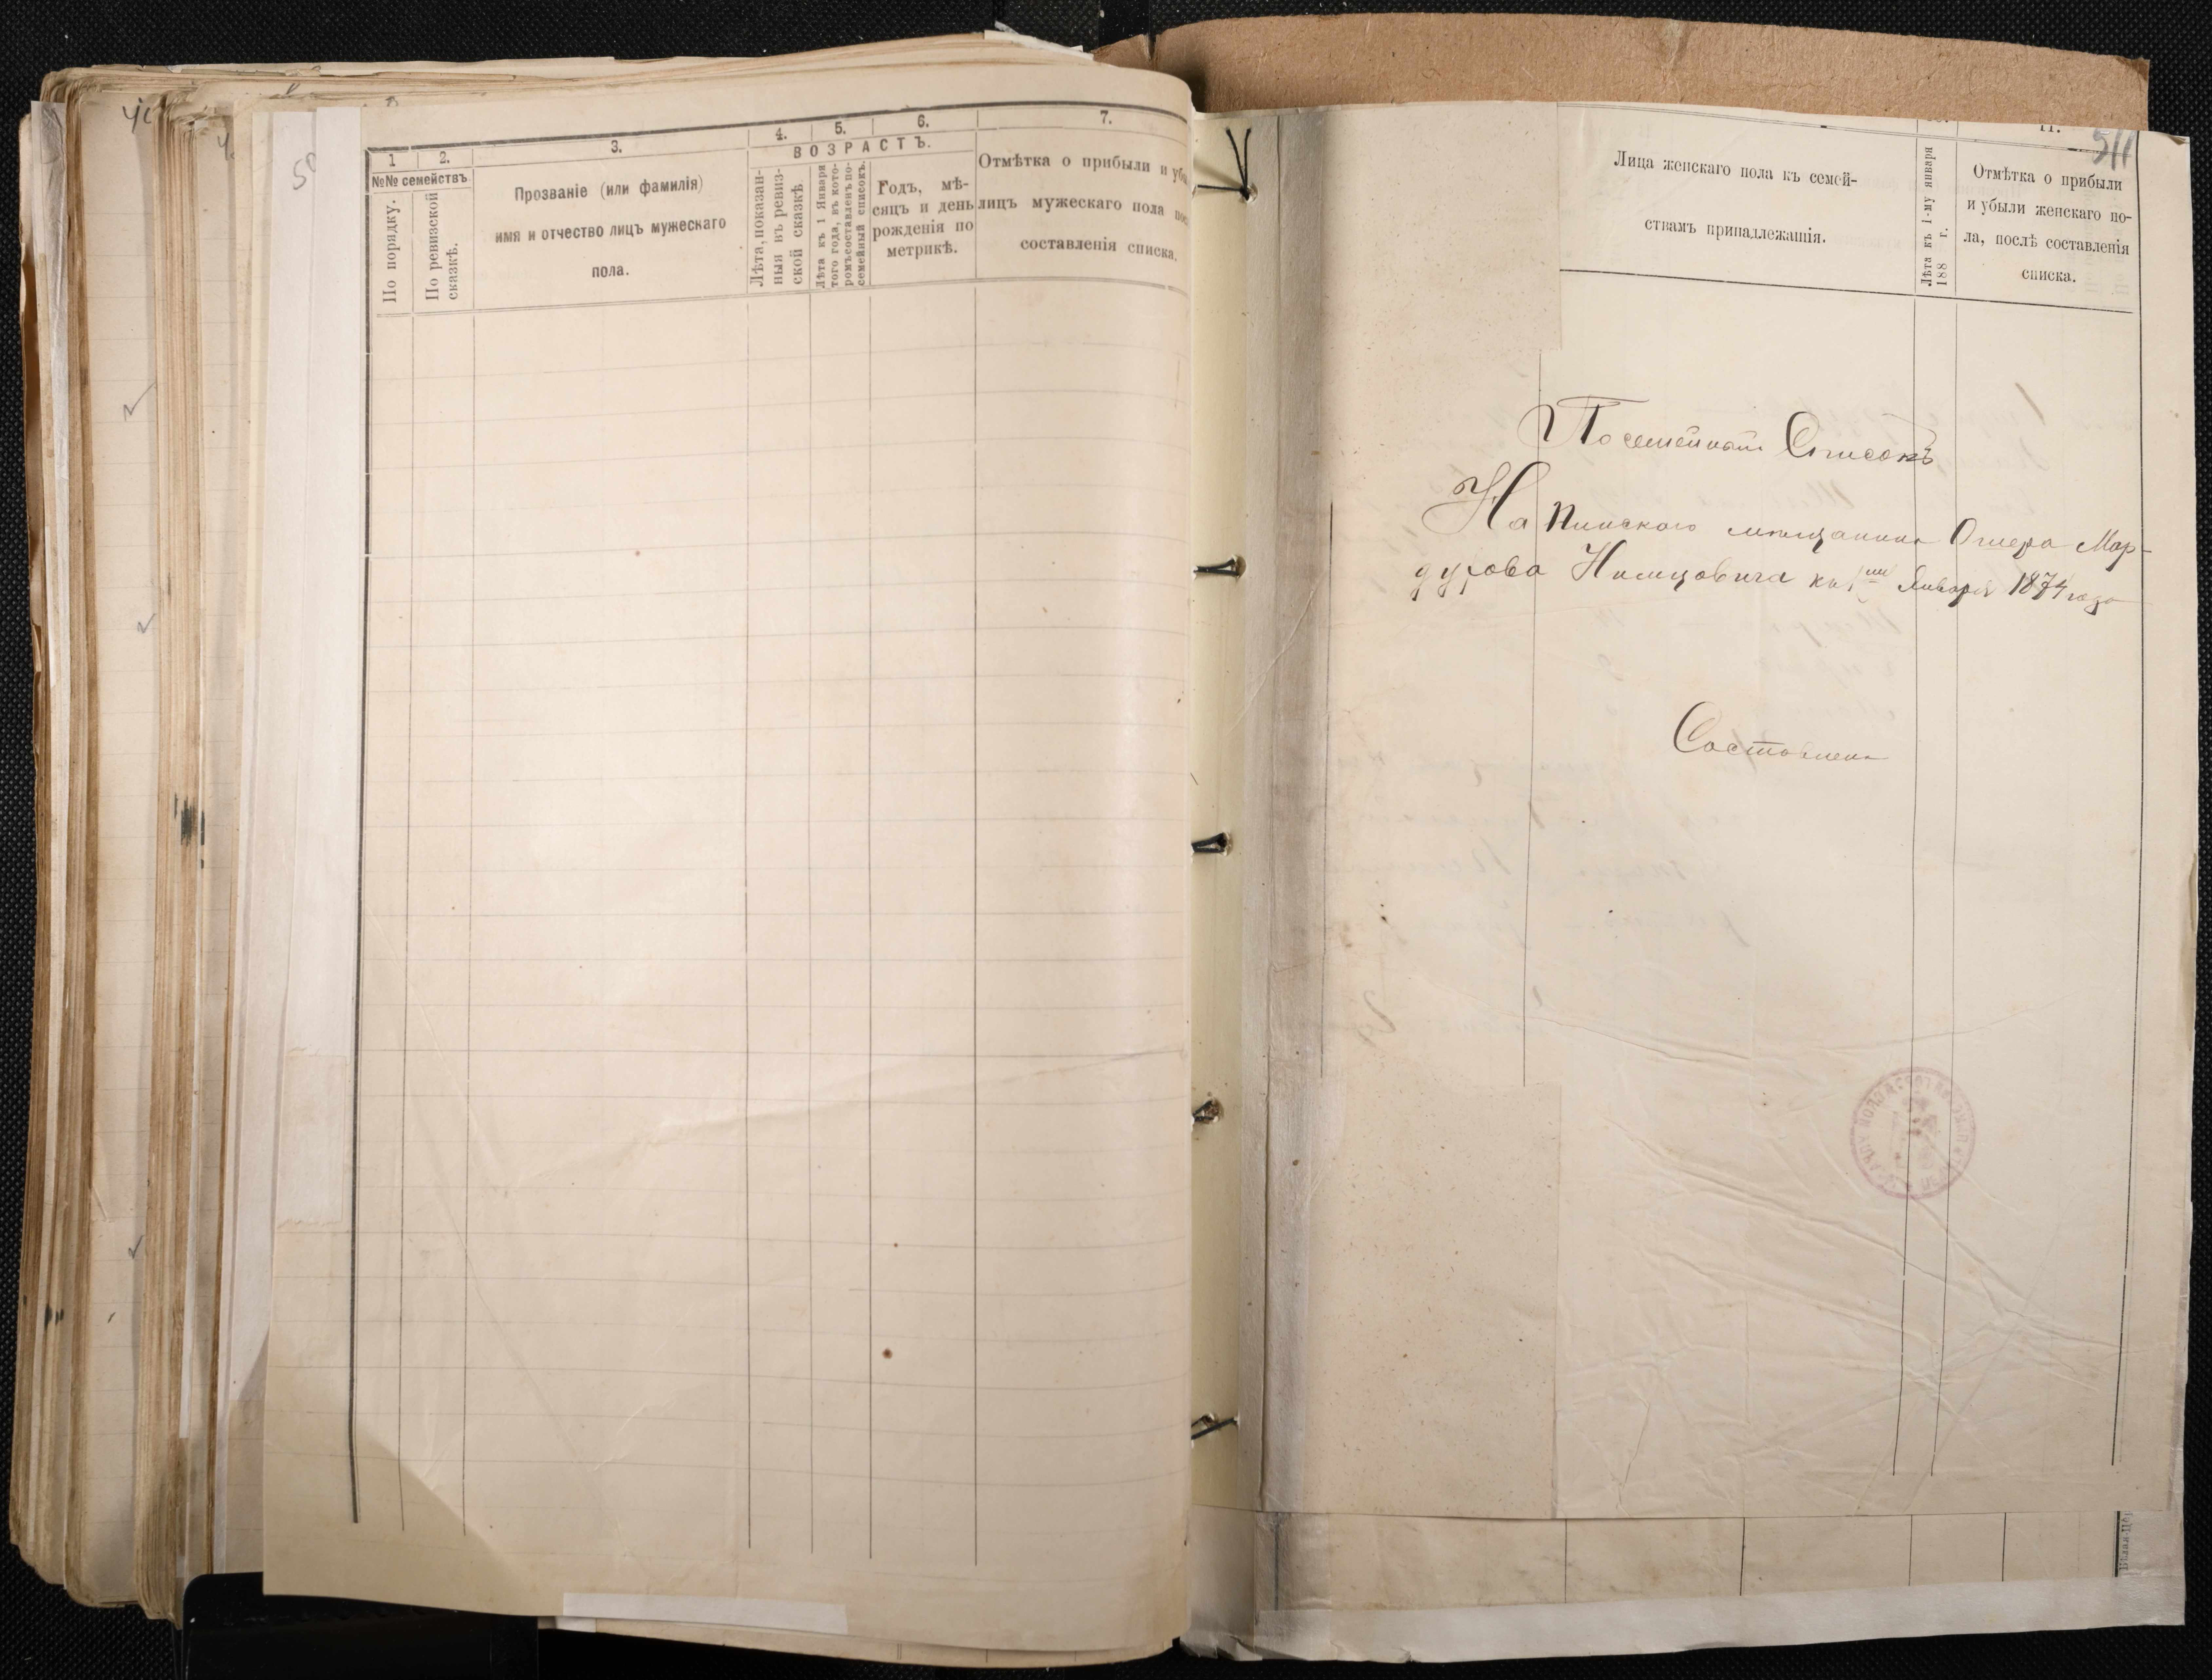 1
2.
3.
4.
5.
6.
7.
№№ семействъ
По порядку.
По ревизской
сказкѣ.
Прозваніе (или фамилія)
имя и отчество лицъ мужескаго
пола.
ВОЗРАСТЪ.
Лѣта, показан-
ныя въ ревиз-
ской сказкѣ
Лѣта къ 1 Января
того года, въ кото-
ромъ составленъ по-
семейный списокъ.
Годъ, мѣ-
сяцъ и день
рожденія по
метрикѣ.
Отмѣтка о прибыли и убы
лицъ мужескаго пола пос
составленія списка.
11.
511
Лица женскаго пола къ семей-
ствамъ принадлежащія.
Лѣта къ 1-му января
188 г.
Отмѣтка о прибыли
и убыли женскаго по-
ла, послѣ составленія
списка.
Посемейный Списокъ
На Пинскаго мещанина Ошера Мар-
духова Нимцовича къ 1му Января 1874 года
Составлена